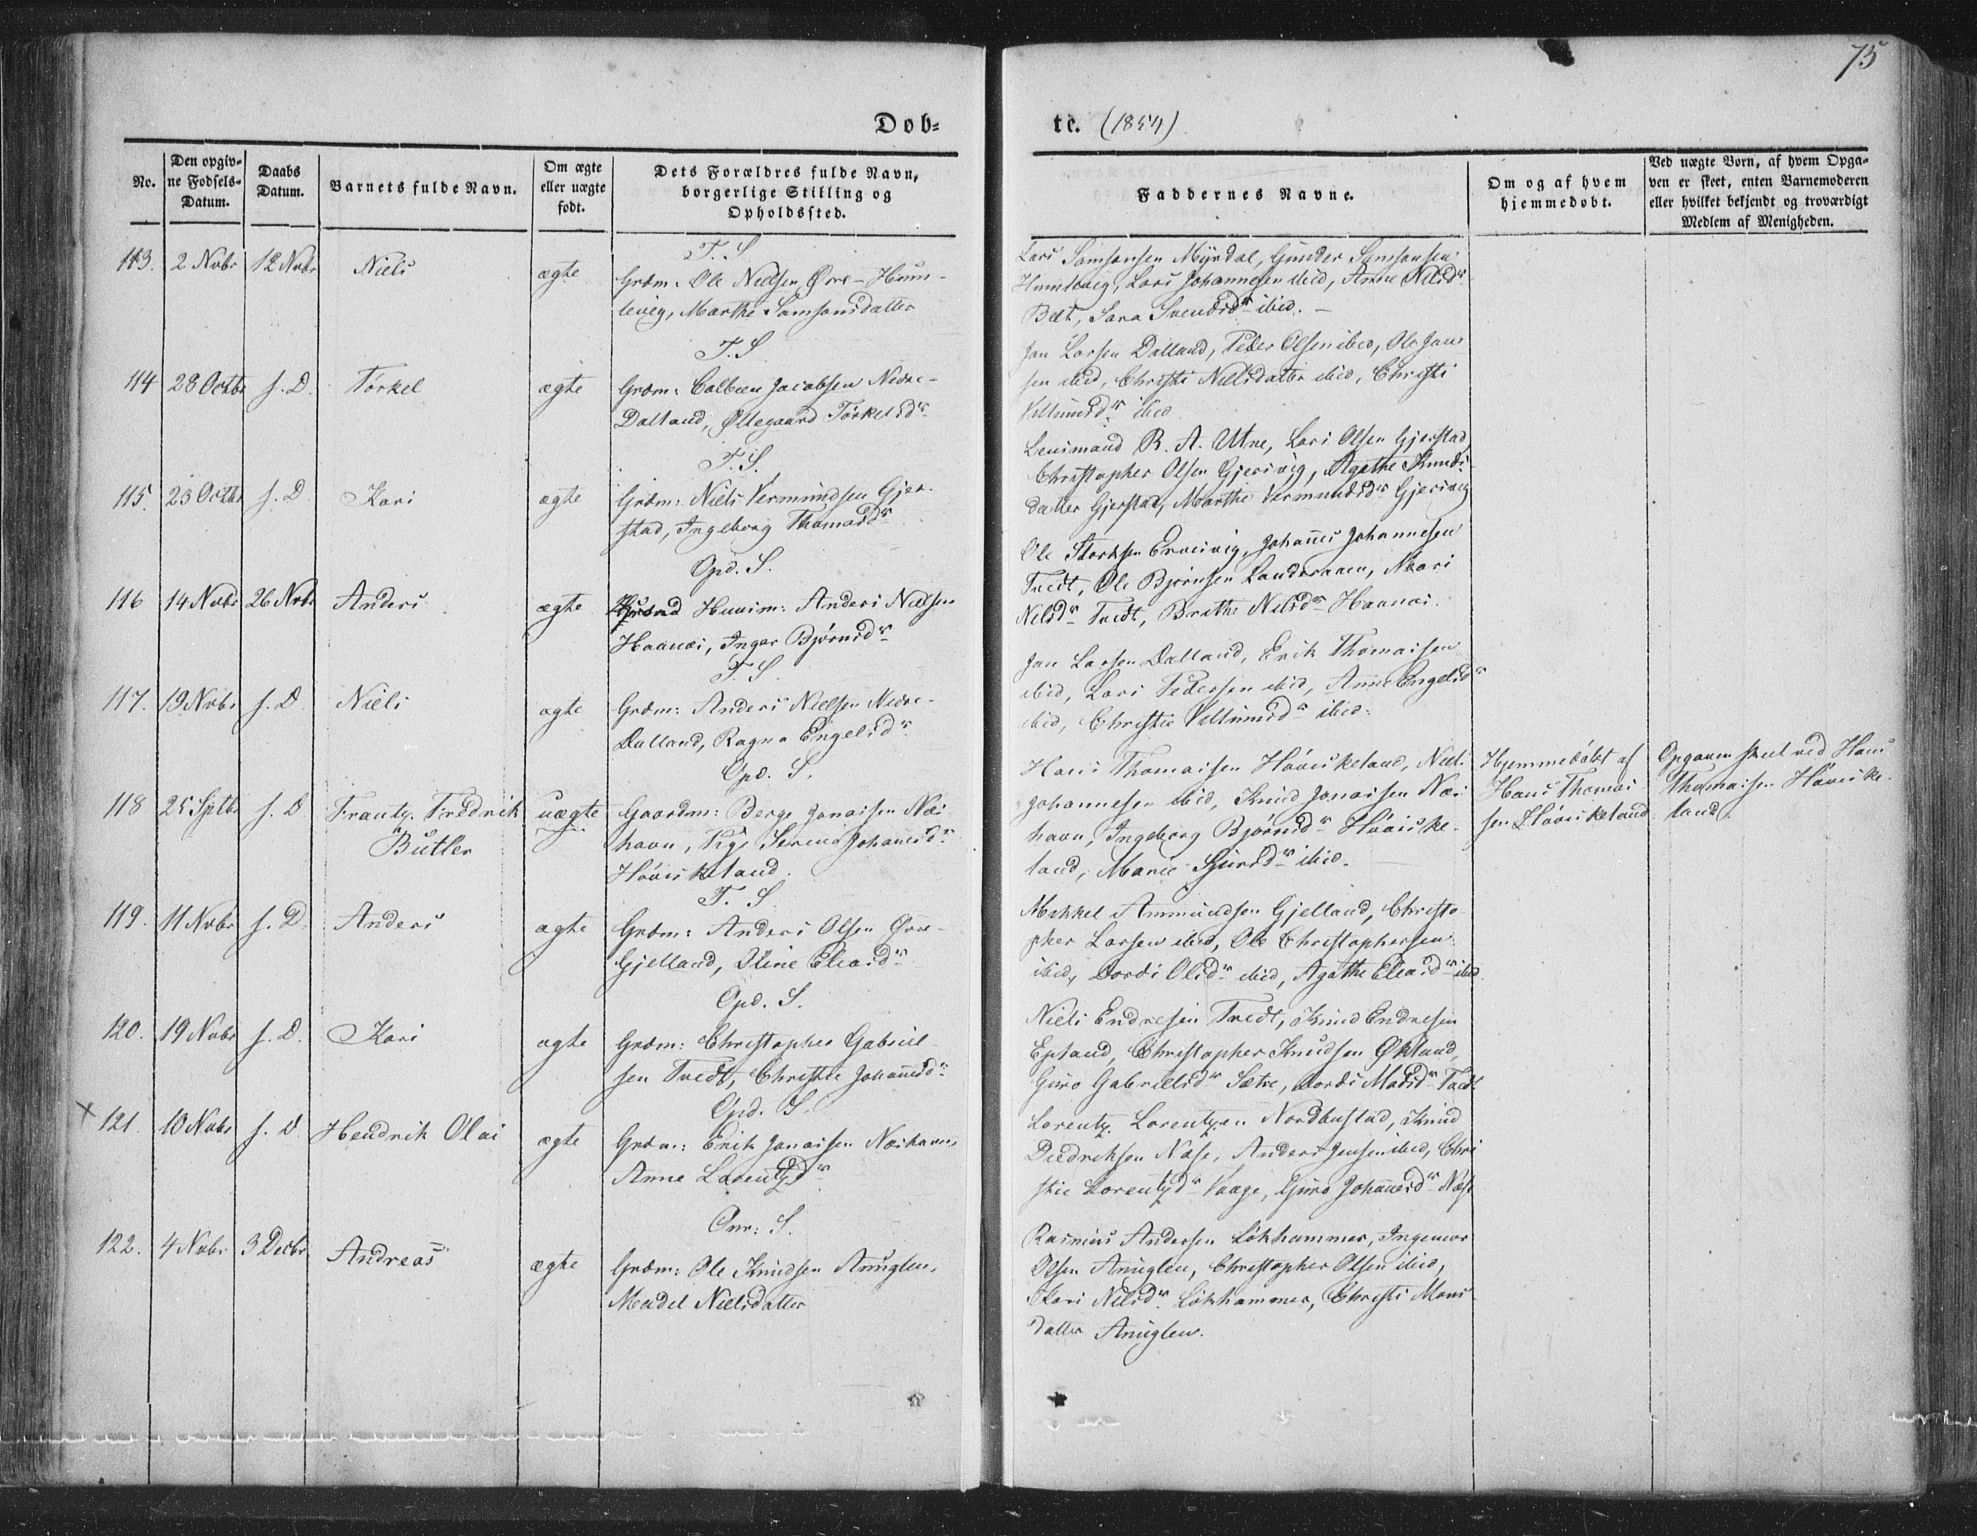 75
Døb-
te. (1854)
No.
Den opgivne Fødsels-Datum.
Daabs Datum.
Barnets fulde Navn.
Om ægte eller uægte født.
Dets Forældres fulde Navn, borgerlige Stilling og Opholdssted.
Faddernes Navne.
Om og af hvem hjemmedøbt.
Ved uægte Børn, af hvem Opgaven er skeet, enten Barnemoderen eller hvilket bekjendt og troværdigt Medlem af Menigheden.
T. S
113. 2 Novbr 12 Novbr Niels ægte Grdm: Ole Nielsen Øvre-Hum-
levig, Marthe Samsonsdatter
Lars Samsonsen Myrdal, Gunder Samsonsen
Humlevig, Lars Johannesen ibid, Anne Nilsdr
Belt, Sara Svendsdr ibid. –
T. S
114 28 Octbr s. D. Torkel ægte Grdm: Colbein Jacobsen Nedre-
Dalland, Øllegaard Torkelsdr
Jan Larsen Dalland, Peder Olsen ibid, Ole Jan
sen ibid, Christi Nielsdatter ibid, Christi
ibid
T. S.
115. 23 Octbr s. D Kari ægte Grdm: Niels Vermundsen Gjer-
stad, Ingeborg Thomasdr
Lensmand R. A. Utne, Lars Olsen Gjerstad,
Christopher Olsen Gjersvig, Agathe Knuds
datter Gjerstad, Marthe Vermundsdr Gjersvig
Opd. S.
116 14 Novbr 26 Novbr Anders ægte Huusm: Anders Nielsen
Haanæs, Inger Bjørnsdr
Ole Ervesvig, Johannes Johannesen
Tvedt, Ole Bjørnsen Landeraaen, Kari
Nilsdr Tvedt, Brithe Nilsdr Haanæs.
T. S.
117. 19 Novbr s. D Niels ægte Grdm: Anders Nielsen Nedre-
Dalland, Ragna Engelsdr
Jan Larsen Dalland, Erik Thomassen
ibid, Lars Pedersen ibid, Anne Engelsdr
ibid, Christie ibid.
Opd. S.
118 25 Sptbr s. D Frantz Fredrik uægte Gaardm: Berge Jonassen Næs
Butler havn, Pige Serina Johannesdr
Høviskeland.
Hans Thomassen Høviskeland, Niels
Johannesen ibid, Knud Jonassen Næs
havn, Ingeborg Bjørnsdr Høviske-
land, Marie Sjursdr ibid.
Hjemmedøbt af
Hans Thomas
sen Høviskeland
Opgaven skeet ved Hans
Thomassen Høviske-
land.
T. S
119. 11 Novbr s. D. Anders ægte Grdm: Anders Olsen Øvre-
Gjelland, Oline Eliasdr
Mikkel Ammundsen Gjelland, Christo-
pher Larsen ibid, Ole Christophersen
ibid, Dordi Olsdr ibid, Agathe Eliasdr ibid.
Opd. S.
120. 19 Novbr s. D. Kari ægte Grdm: Christopher Gabriel-
sen Tvedt, Christie Johannesdr
Niels Endresen Tvedt, Knud Endresen
Epland, Christopher Knudsen Økland,
Guro Gabrielsdr Sætre, Dordi Madsdr Tvedt
Opd. S.
× 121 10 Novbr s. D. Hendrik Olai ægte Grdm: Erik Jonassen Næshavn,
Anne Lorentzdr
Lorentz Lorentzen Nordbustad, Knud
Diedriksen Næse, Anders Jensen ibid, Chri
stie Lorentzdr Vaage, Guro Johannesdr Næse
Onr: S.
122. 4 Novbr 3 Decbr Andreas ægte Grdm: Ole Knudsen Anuglen,
Mardel Nielsdatter
Rasmus Andersen Løkhammer, Ingemor
Olsen Anuglen, Christopher Olsen ibid,
Kari Nilsdr Løkhammer, Christi Mons
datter Anuglen.